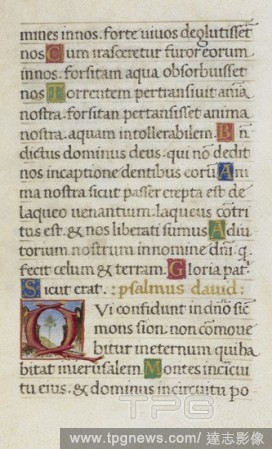 mines in nos. forte uiuos deglutisset
nos Cum irasceretur furor eorum
in nos. forsitam aqua obsorbuisset
nos Torrentem pertransiuit anima
nostra. forsitan pertansisset anima
nostra. aquam intollerabilem. Bn̄
dictus dominus deus. qui nō dedit
nos in captione dentibus corū Ani
ma nostra sicut passer erepta est de
laqueo uenantium. laqueus cōtri
tus est. & nos liberati sumus Adiu
torium nostrum in nomine dn̄i q̄
fecit celum & terram. Gloria pat̄.
Sicut erat. : psalmus dauid:
QVi confidunt in dn̄o sic̄
mons sion. non cōmoue
bitur in eternum qui ha
bitat in ierusalem Montes in circui
tu eius. & dominus in circuitu po
TPG
www.tpgnews.com/達志影像